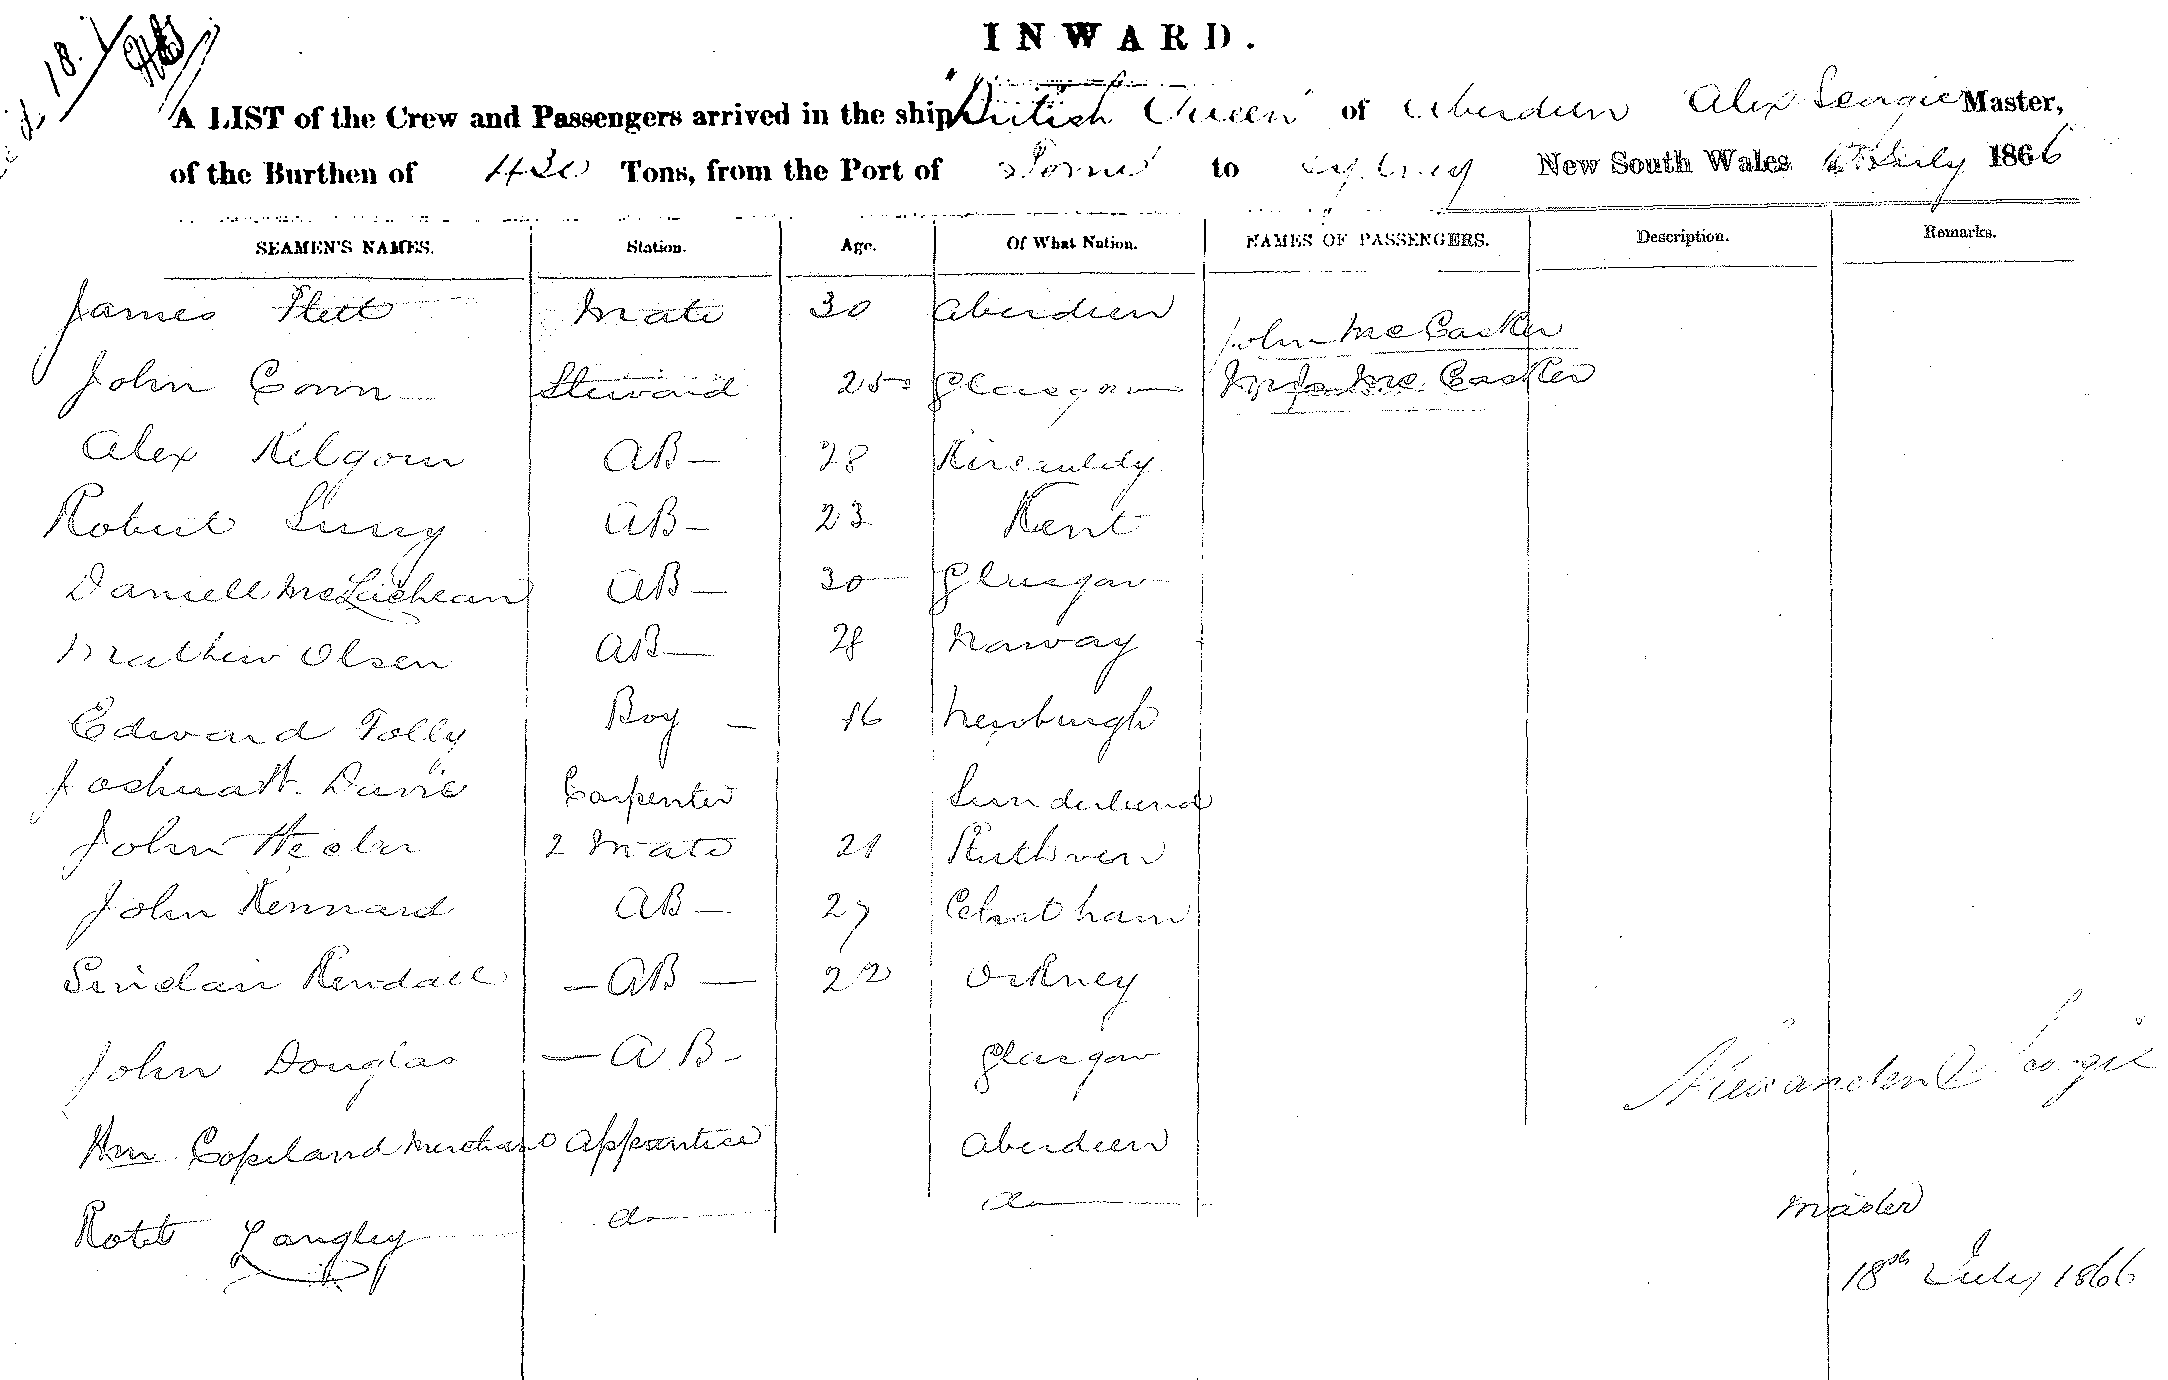 18.
INWARD.
A LIST of the Crew and Passengers arrived in the ship "British Queen" of Aberdeen Alex Master,
of the Burthen of 430 Tons, from the Port of to Sydney New South Wales July 1866
SEAMEN'S NAMES. Station. Age. Of What Nation. NAMES OF PASSENGERS. Description. Remarks.
James Flett Mate 30 Aberdeen
John McCasker
John Conn Steward 25 Glasgow Mrs McCasker
Alex Kilgour AB 28 Kircauldy
Robert AB 23 Kent
Daniell McLachlean AB 30 Glasgow
Mathew Olsen AB 28 Norway
Edward Tolly Boy 16 Newburgh
Joshua Carpenter Sunderland
John 2 Mate 21 Ruthven
John Kennard AB 27 Chatham
Sinclair Kendall AB 22 Orkney
John Douglas AB Glasgow
Wm Copeland Apprentice Aberdeen
Robt Langley do do
Alexander
Master
18th July 1866